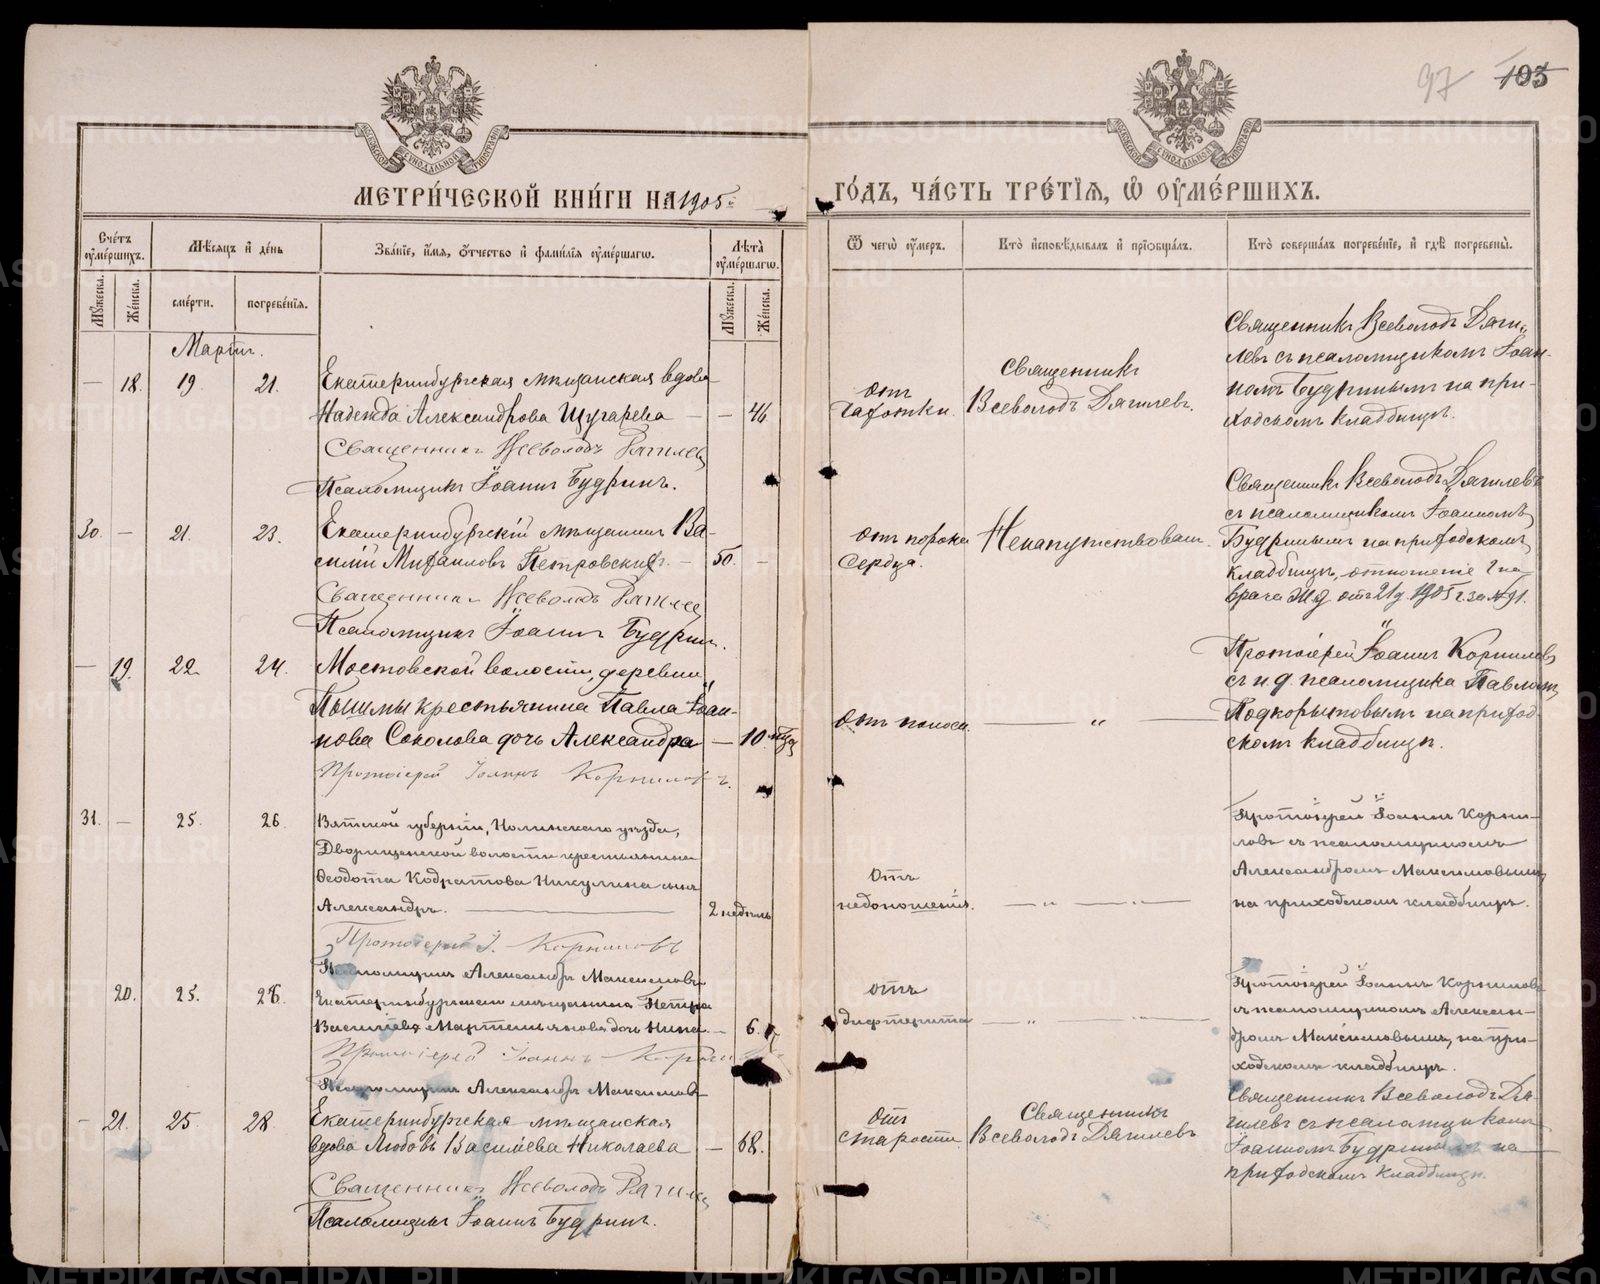 97 103
МЕТРИ́ЧЕСКОЙ КНИ́ГИ НА 1905 ГО́ДЪ, ЧА́СТЬ ТРЕ́ТІѦ, Ѡ ОУМЕ́РШИХЪ.
Сче́тъ оумершихъ.
Мужеска.
Же́нска.
Мѣсяцъ и де́нь
сме́рти.
погребе́нія.
Зва́ніе, и́мя, о́тчество и фами́лія оуме́ршагѡ.
Лѣта̀ оуме́ршагѡ.
Мужеска.
Же́нска.
Ѿ чегѡ̀ оу́меръ.
Кто̀ исповѣ́дывалъ и пріобща́лъ.
Кто̀ соверша́лъ погребе́ніе, и гдѣ̀ погребены̀.
Мартъ.
— 18. 19. 21.
Екатеринбургская мѣщанская вдова
Надежда Александрова Щугарева — — 46.
Священникъ Всеволодъ Дягилев
Псаломщикъ Іоаннъ Будринъ.
отъ
чахотки.
Священникъ
Всеволодъ Дягилевъ.
Священникъ Всеволодъ Дяги-
левъ съ псаломщикомъ Іоан-
номъ Будринымъ на при-
ходскомъ кладбищѣ.
30. — 21. 23.
Екатеринбургскій мѣщанинъ Ва-
силій Михаиловъ Петровскихъ. — 50. —
Священникъ Всеволодъ Дягилев
Псаломщикъ Іоаннъ Будрин.
отъ порока
сердца.
Ненапутствованъ.
Священникъ Всеволодъ Дягилевъ
съ псаломщикомъ Іоанномъ
Будринымъ на приходскомъ
кладбищѣ, отношеніе
врача отъ 21 1905 г. за № 91.
— 19. 22. 24.
Мостовской волости, деревни
Пышмы крестьянина Павла Іоан-
нова Соколова дочь Александра — 10.
Протоіерей Іоаннъ Корниловъ.
отъ поноса. — „ —
Протоіерей Іоаннъ Корниловъ
съ и. д. псаломщика Павломъ
Подкорытовымъ на приход-
скомъ кладбищѣ.
31. — 25. 26.
Вятской губерніи, Нолинскаго уѣзда,
Дворищенской волости крестьянина
Ѳеодота Кодратова Никулина сынъ
Александръ. — 2 недѣль
Протоіерей І. Корниловъ
Псаломщикъ Александръ Максимовъ
отъ
недоношенія. — „ — „ —
Протоіерей Іоаннъ Корни-
ловъ съ псаломщикомъ
Александромъ Максимовымъ
на приходскомъ кладбищѣ.
20. 25. 26.
Екатеринбургскаго мѣщанина Петра
Василіева Мартемьянова дочь Нина — 6.
Протоіерей Іоаннъ Корнилов
Псаломщикъ Александръ Максимов
отъ
дифтерита — „ — „ —
Протоіерей Іоаннъ Корниловъ
съ псаломщикомъ Алексан-
дромъ Максимовымъ, на при-
ходскомъ кладбищѣ.
— 21. 25. 28.
Екатеринбургская мѣщанская
вдова Любовь Василіева Николаева — 68.
Священникъ Всеволодъ Дягилев
Псаломщикъ Іоаннъ Будрин.
отъ
старости.
Священникъ
Всеволодъ Дягилевъ
Священникъ Всеволодъ Дя-
гилевъ съ псаломщикомъ
Іоанномъ Будринымъ на
приходскомъ кладбищѣ.
METRIKI.GASO-URAL.RU